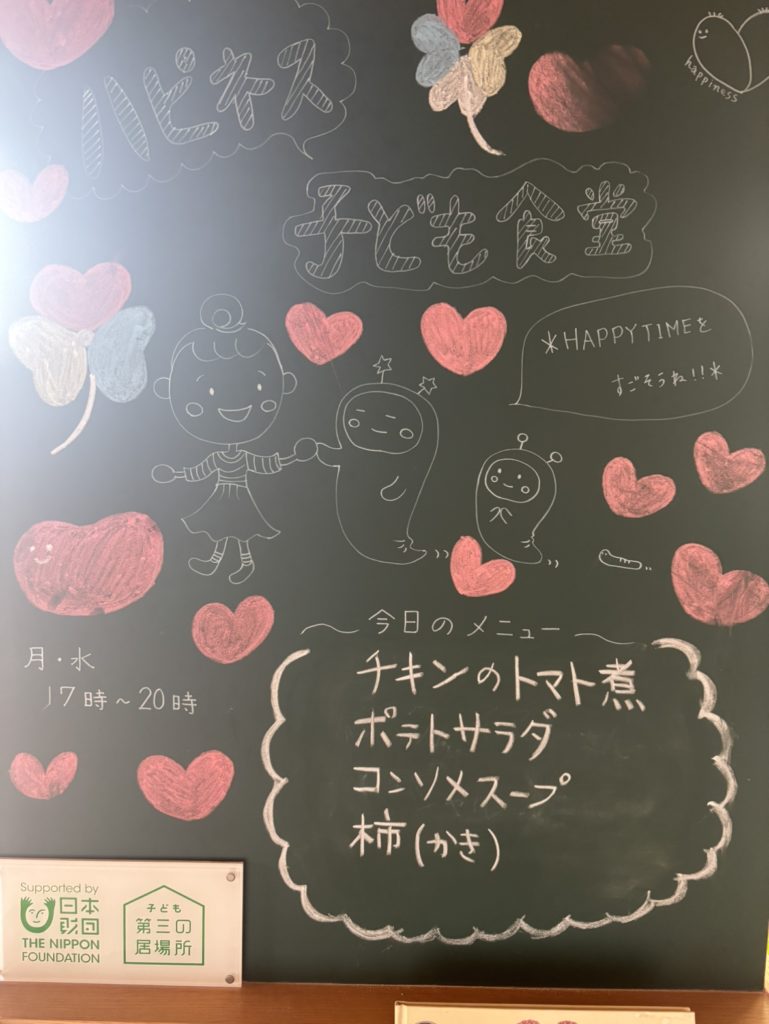 ハピネス
happiness
子ども食堂
*HAPPYTIMEを
すごそうね!!*
今日のメニュー
チキンのトマト煮
ポテトサラダ
コンソメスープ
柿(かき)
月・水
17時~20時
Supported by
日本
財団
THE NIPPON
FOUNDATION
子ども
第三の
居場所